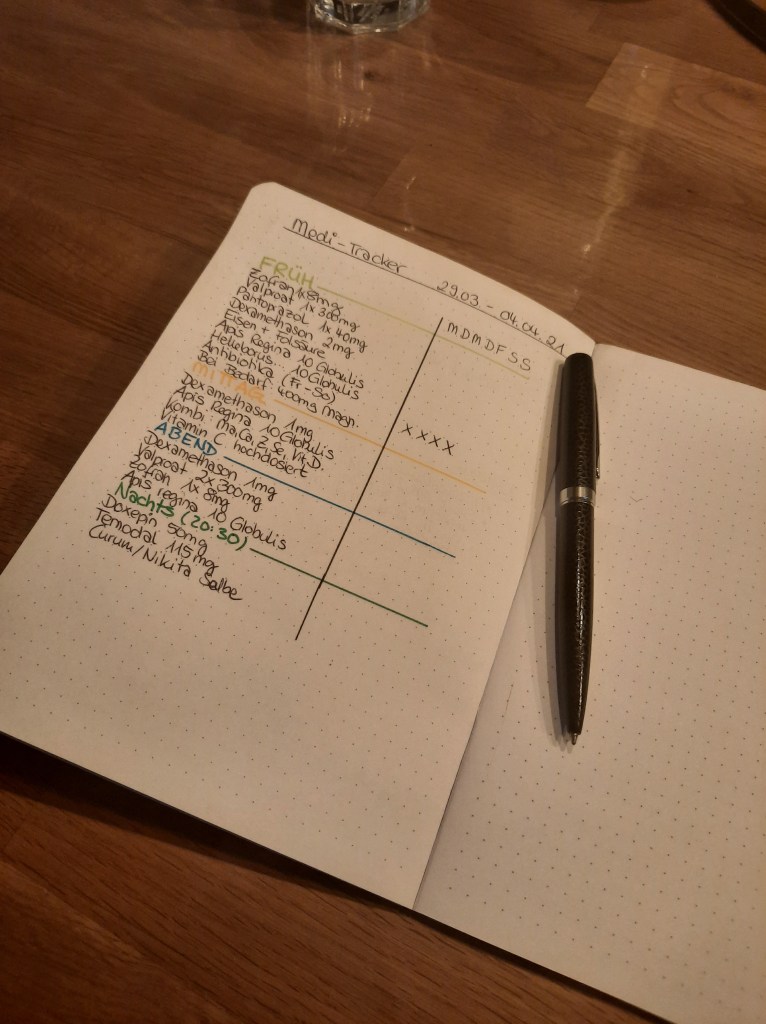 Medi-Tracker 29.03 - 04.04.21
M D M D F S S
FRÜH
Zofran 1x8mg
Valproat 1x 300mg
Pantoprazol 1x 40mg
Dexamethason 2mg
Eisen + Folsäure
Apis Regina 10 Globulis
Helleborus... 10 Globulis
Antibiotika (Fr-So)
Bei Bedarf: 400mg Magn.
X X X X
MITTAG
Dexamethason 1mg
Apis Regina 10 Globulis
Kombi: Ma, Ca, Z, Se, Vit. D.
Vitamin C hochdosiert
ABEND
Dexamethason 1mg
Valproat 2x 300mg
Zofran 1x 8mg
Apis regina 10 Globulis
Nachts (20:30)
Doxepin 50mg
Temodal 115mg
Curum/Nikita Salbe